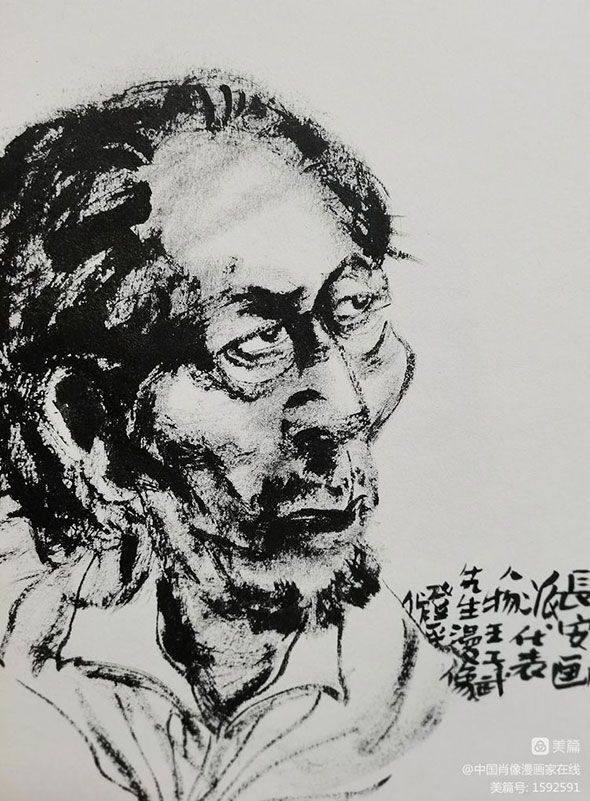 長安画
派代表
人物王子武
先生漫像
美篇
@中国肖像漫画家在线
美篇号: 1592591